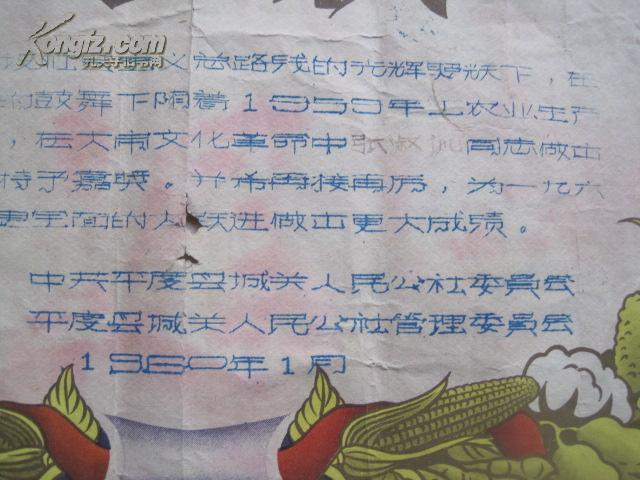 Kongfz.com
孔夫子旧书网
设社会主义总路线的光辉照跃下，在
的鼓舞下随着1959年工农业生产
，在大闹文化革命中张淑 同志做出
特予嘉奖。并希再接再厉，为一九六
更全面的大跃进做出更大成绩。
中共平度县城关人民公社委員会
平度县城关人民公社管理委員会
1960年1月